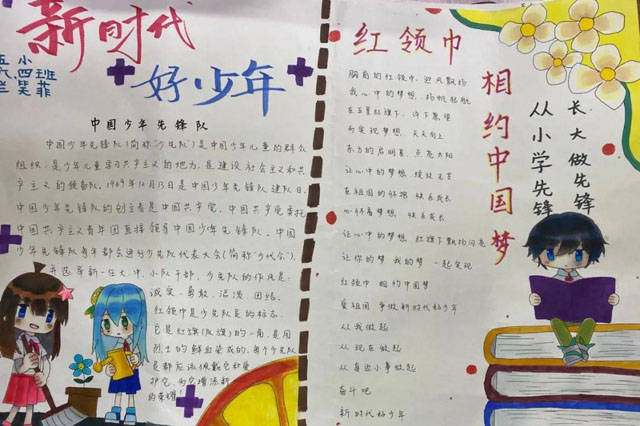 新时代
好少年
五小
六.四班
中国少年先锋队
中国少年先锋队(简称"少先队")是中国少年儿童的群众
组织,是少年儿童学习共产主义的地方,是建设社会主义和共
产主义的预备队。1949年10月13日是中国少年先锋队建队日。
中国少年先锋队的创立者是中国共产党。中国共产党委托
中国共产主义青年团直接领导中国少年先锋队。中国
少年先锋队每年都会进行少先队代表大会(简称"少代会"),
并选举新一任大、中、小队干部。少先队的作风是:
诚实、勇敢、活泼、团结。
红领巾是少先队员的标志,
它是红旗(队旗)的一角,是用
烈士的鲜血染成的,每个少先队
员都应该佩戴它和爱
护它,为它增添新
的荣耀!
红领巾
相约中国梦
胸前的红领巾,迎风飘扬
我心中的梦想,扬帆起航
在五星红旗下,许下愿望
向实现梦想,天天向上
东方的启明星,点亮太阳
让心中的梦想,绽放光芒
在祖国的怀抱,快乐成长
心怀着梦想,快乐成长
让心中的梦想,红旗下飘扬闪亮
让你的梦 我的梦 一起实现
红领巾 相约中国梦
爱祖国 争做新时代好少年
从我做起
从现在做起
从身边小事做起
奋斗吧
新时代好少年
从小学先锋
长大做先锋